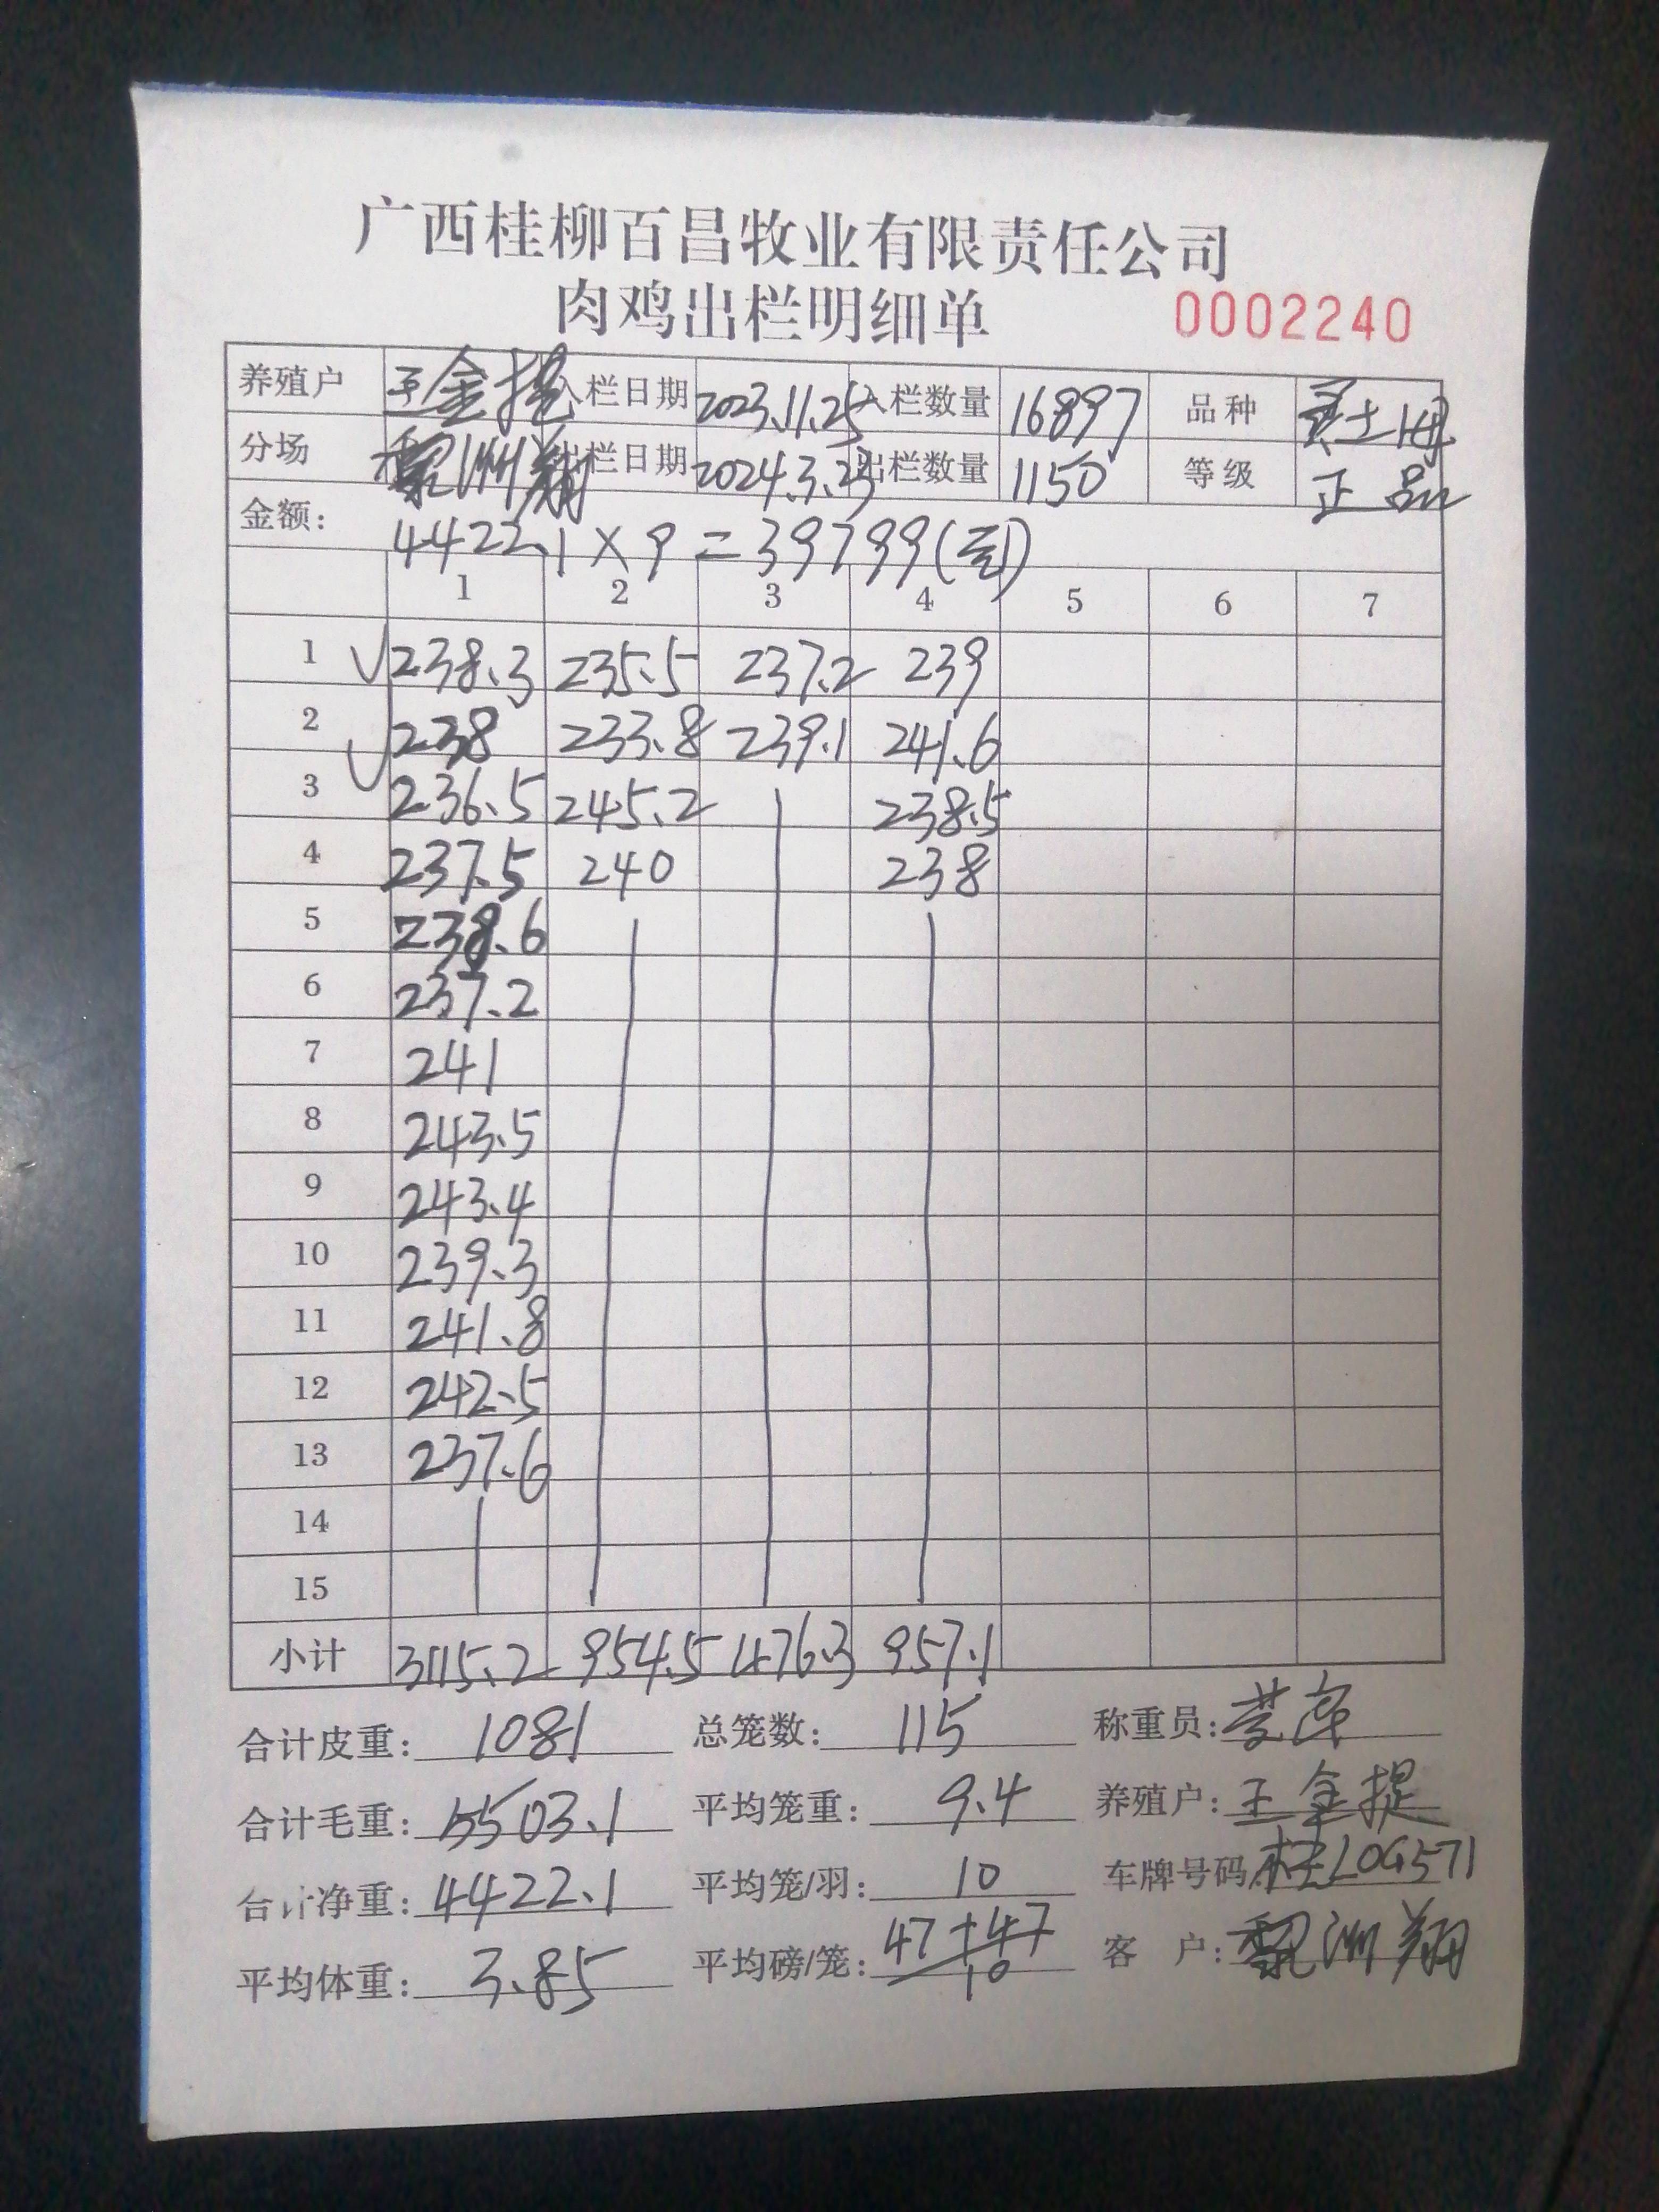 广西桂柳百昌牧业有限责任公司
肉鸡出栏明细单 0002240
养殖户 王金提 入栏日期 2023.11.25 入栏数量 16897 品种 土
分场 黎洲翔 出栏日期 2024.3.23 出栏数量 1150 等级 正品
金额: 4422.1×9=39799(元)
1 2 3 4 5 6 7
1 238.3 235.5 237.2 239
2 238 233.8 239.1 241.6
3 236.5 245.2 238.5
4 237.5 240 238
5 238.6
6 237.2
7 241
8 243.5
9 243.4
10 239.3
11 241.8
12 242.5
13 237.6
14
15
小计 3115.2 954.5 476.3 957.1
合计皮重: 1081 总笼数: 115 称重员:
合计毛重: 5503.1 平均笼重: 9.4 养殖户: 王金提
合计净重: 4422.1 平均笼/羽: 10 车牌号码: 桂L0G571
平均体重: 3.85 平均磅/笼: 47+47 客户: 黎洲翔
10